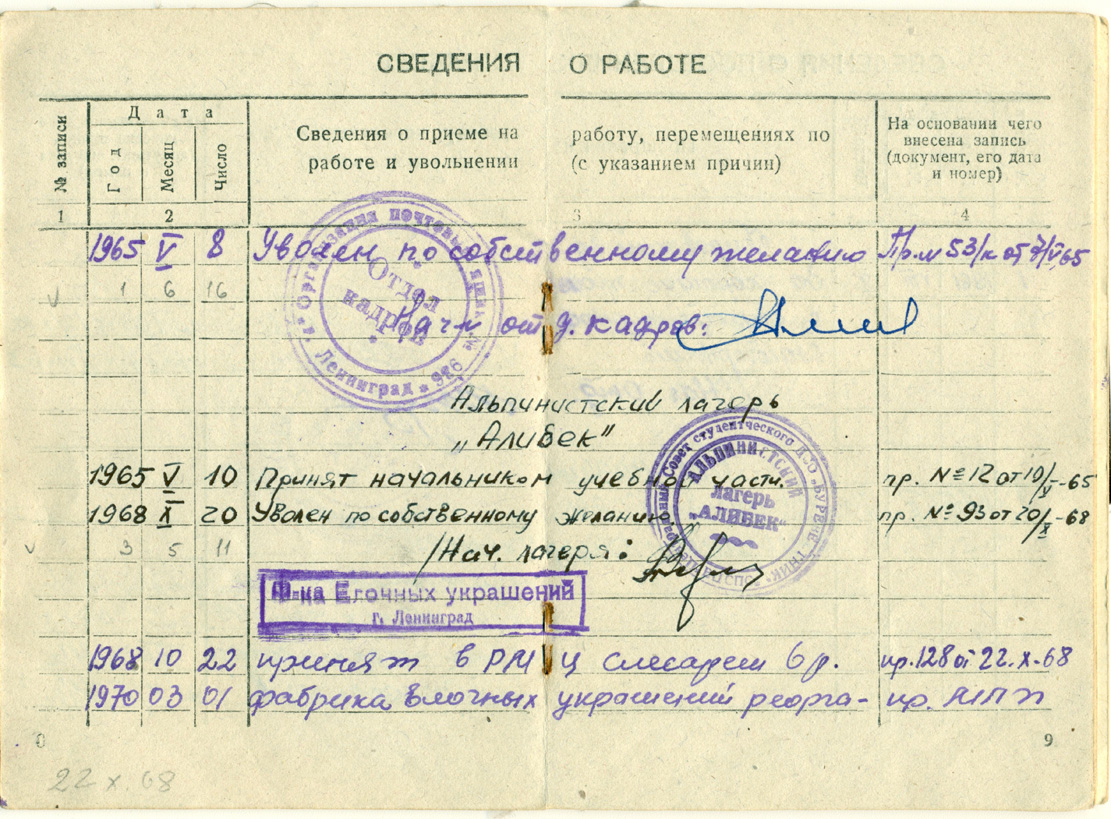 СВЕДЕНИЯ О РАБОТЕ
№ записи
Дата
Год Месяц Число
Сведения о приеме на работу, перемещениях по
работе и увольнении (с указанием причин)
На основании чего
внесена запись
(документ, его дата
и номер)
1 2 3 4
1965 V 8 Уволен по собственному желанию Пр. № 53/к от 7/V,65
1 6 16
Нач-к отд. кадров:
Организация почтовый ящик № 926 * г. Ленинград *
Отдел
кадров
Альпинистский лагерь
„Алибек"
1965 V 10 Принят начальником учебной части. пр. № 12 от 10/V-65
1968 X 20 Уволен по собственному желанию. пр. № 93 от 20/X-68
3 5 11
/Нач. лагеря:
Совет студенческого ДСО „БУРЕВЕСТНИК"
АЛЬПИНИСТСКИЙ
лагерь
„АЛИБЕК"
Ф-ка Елочных украшений
г. Ленинград
1968 10 22 принят в РМЦ слесарем 6 р. пр. 128 от 22.X-68
1970 03 01 фабрика елочных украшений реорга- пр. МПП
9
22 X. 68